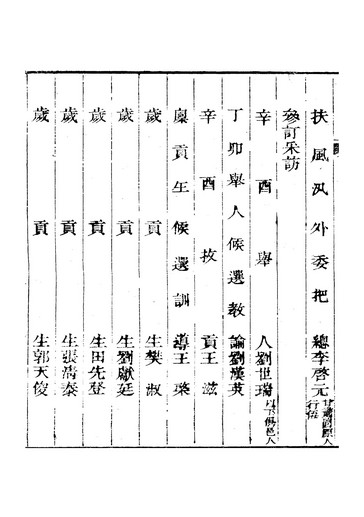 扶風汛外委把總李啓元甘肅
行伍
參訂采訪
辛酉舉人劉世瑞以下俱邑人
丁卯舉人候選教諭劉漢英
辛酉拔貢王滋
廩貢生候選訓導王棨
歲貢生樊淑
歲貢生劉獻廷
歲貢生田先登
歲貢生張清泰
歲貢生郭天俊